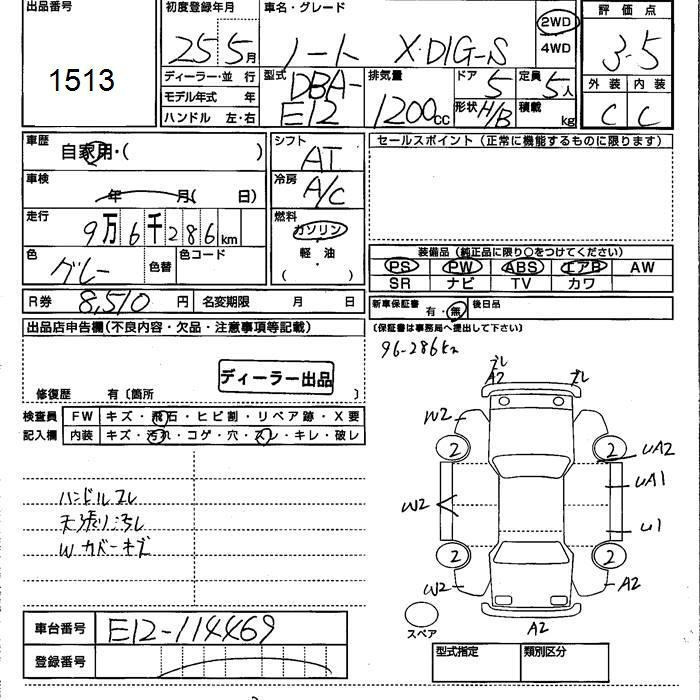 出品番号
1513
初度登録年月
25 5月
車名・グレード
ノート X・DIG-S
2WD
4WD
評価点
3.5
外装 内装
C C
ディーラー・並行
モデル年式 年
ハンドル 左・右
型式
DBA-
E12
排気量
1200cc
ドア 5
形状 H/B
定員 5人
積載 kg
車歴
自家用・( )
車検
年 月( 日)
走行
9万6千286km
色
グレー
色替
色コード
シフト
AT
冷房
A/C
燃料
ガソリン
軽・油
( )
セールスポイント(正常に機能するものに限ります)
装備品(純正品に限り○をつけてください)
PS PW ABS エアB AW
SR ナビ TV カワ
R券 8,510円 名変期限 月 日
新車保証書 有・無 後日品
(保証書は事務局へ提出して下さい)
出品店申告欄(不良内容・欠品・注意事項等記載)
ディーラー出品
修復歴 有〔箇所 〕
96-286km
検査員
記入欄
FW キズ・飛石・ヒビ割・リペア跡・X要
内装 キズ・汚れ・コゲ・穴・スレ・キレ・破レ
ハンドルスレ
天張り汚レ
Wカバーキズ
ブレ
A2
ブレ
W2
2
2
UA2
UA1
W2
U1
2
2
W2
A2
スペア
A2
車台番号 E12-114469
登録番号
型式指定 類別区分